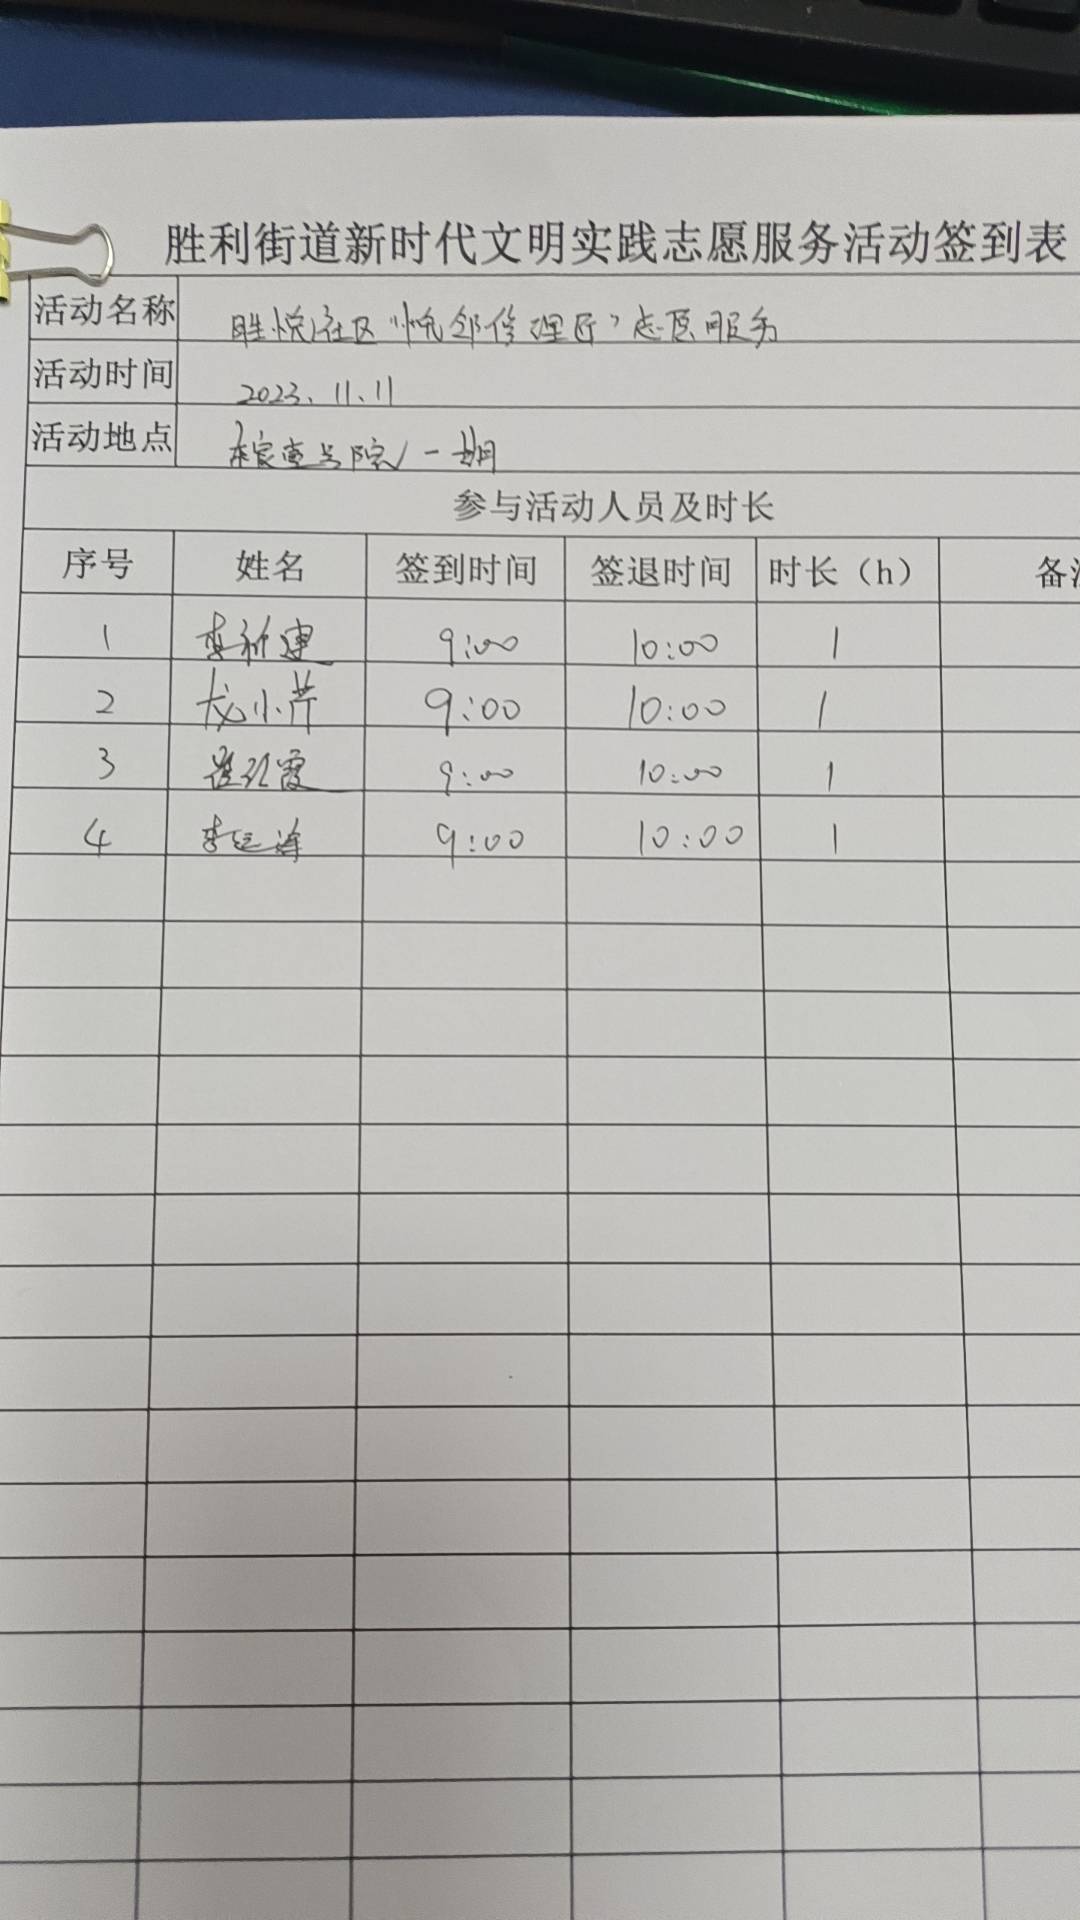 胜利街道新时代文明实践志愿服务活动签到表
活动名称 胜悦社区"悦邻修理匠"志愿服务
活动时间 2023.11.11
活动地点 壹号院一期
参与活动人员及时长
序号 姓名 签到时间 签退时间 时长（h） 备注
1 李新建 9:00 10:00 1
2 龙小芹 9:00 10:00 1
3 霞 9:00 10:00 1
4 李 9:00 10:00 1